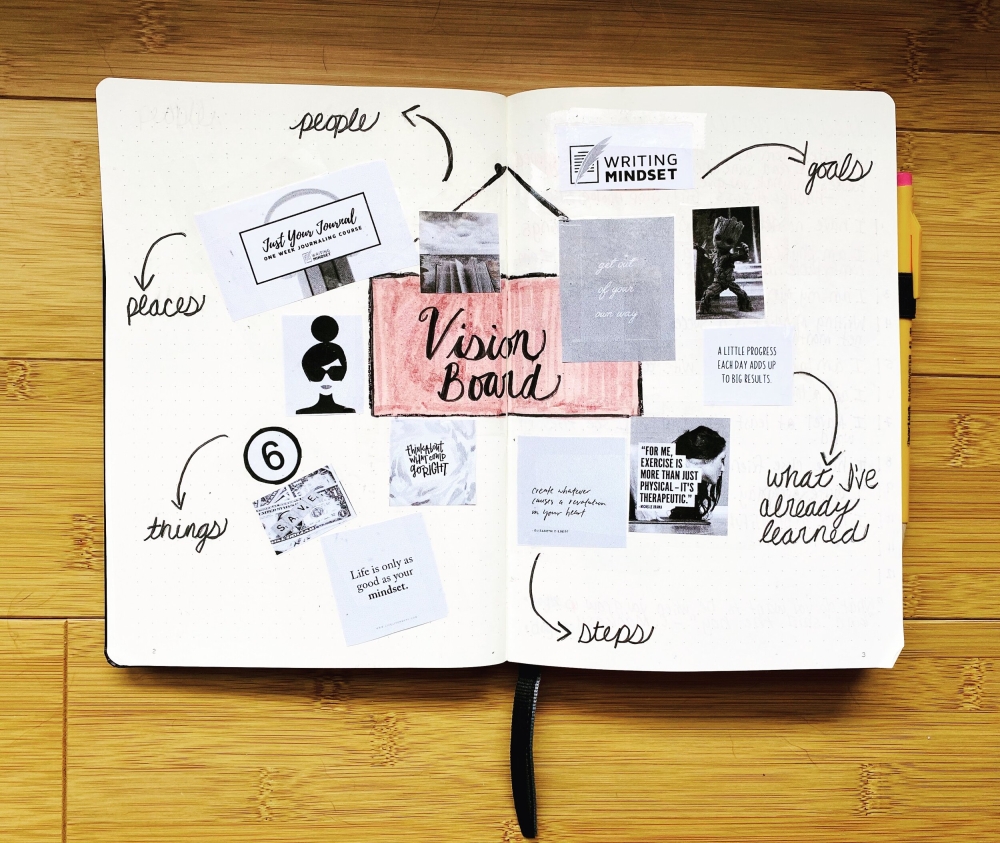 people
WRITING
MINDSET
goals
Just Your Journal
ONE WEEK JOURNALING COURSE
WRITING
MINDSET
places
get out
of your
own way
Vision
Board
A LITTLE PROGRESS
EACH DAY ADDS UP
TO BIG RESULTS.
6
think about
what could
go RIGHT
things
SAVE
create whatever
causes a revolution
in your heart
"FOR ME,
EXERCISE IS
MORE THAN JUST
PHYSICAL - IT'S
THERAPEUTIC."
-MICHELLE OBAMA
what I've
already
learned
Life is only as
good as your
mindset.
steps
2
3